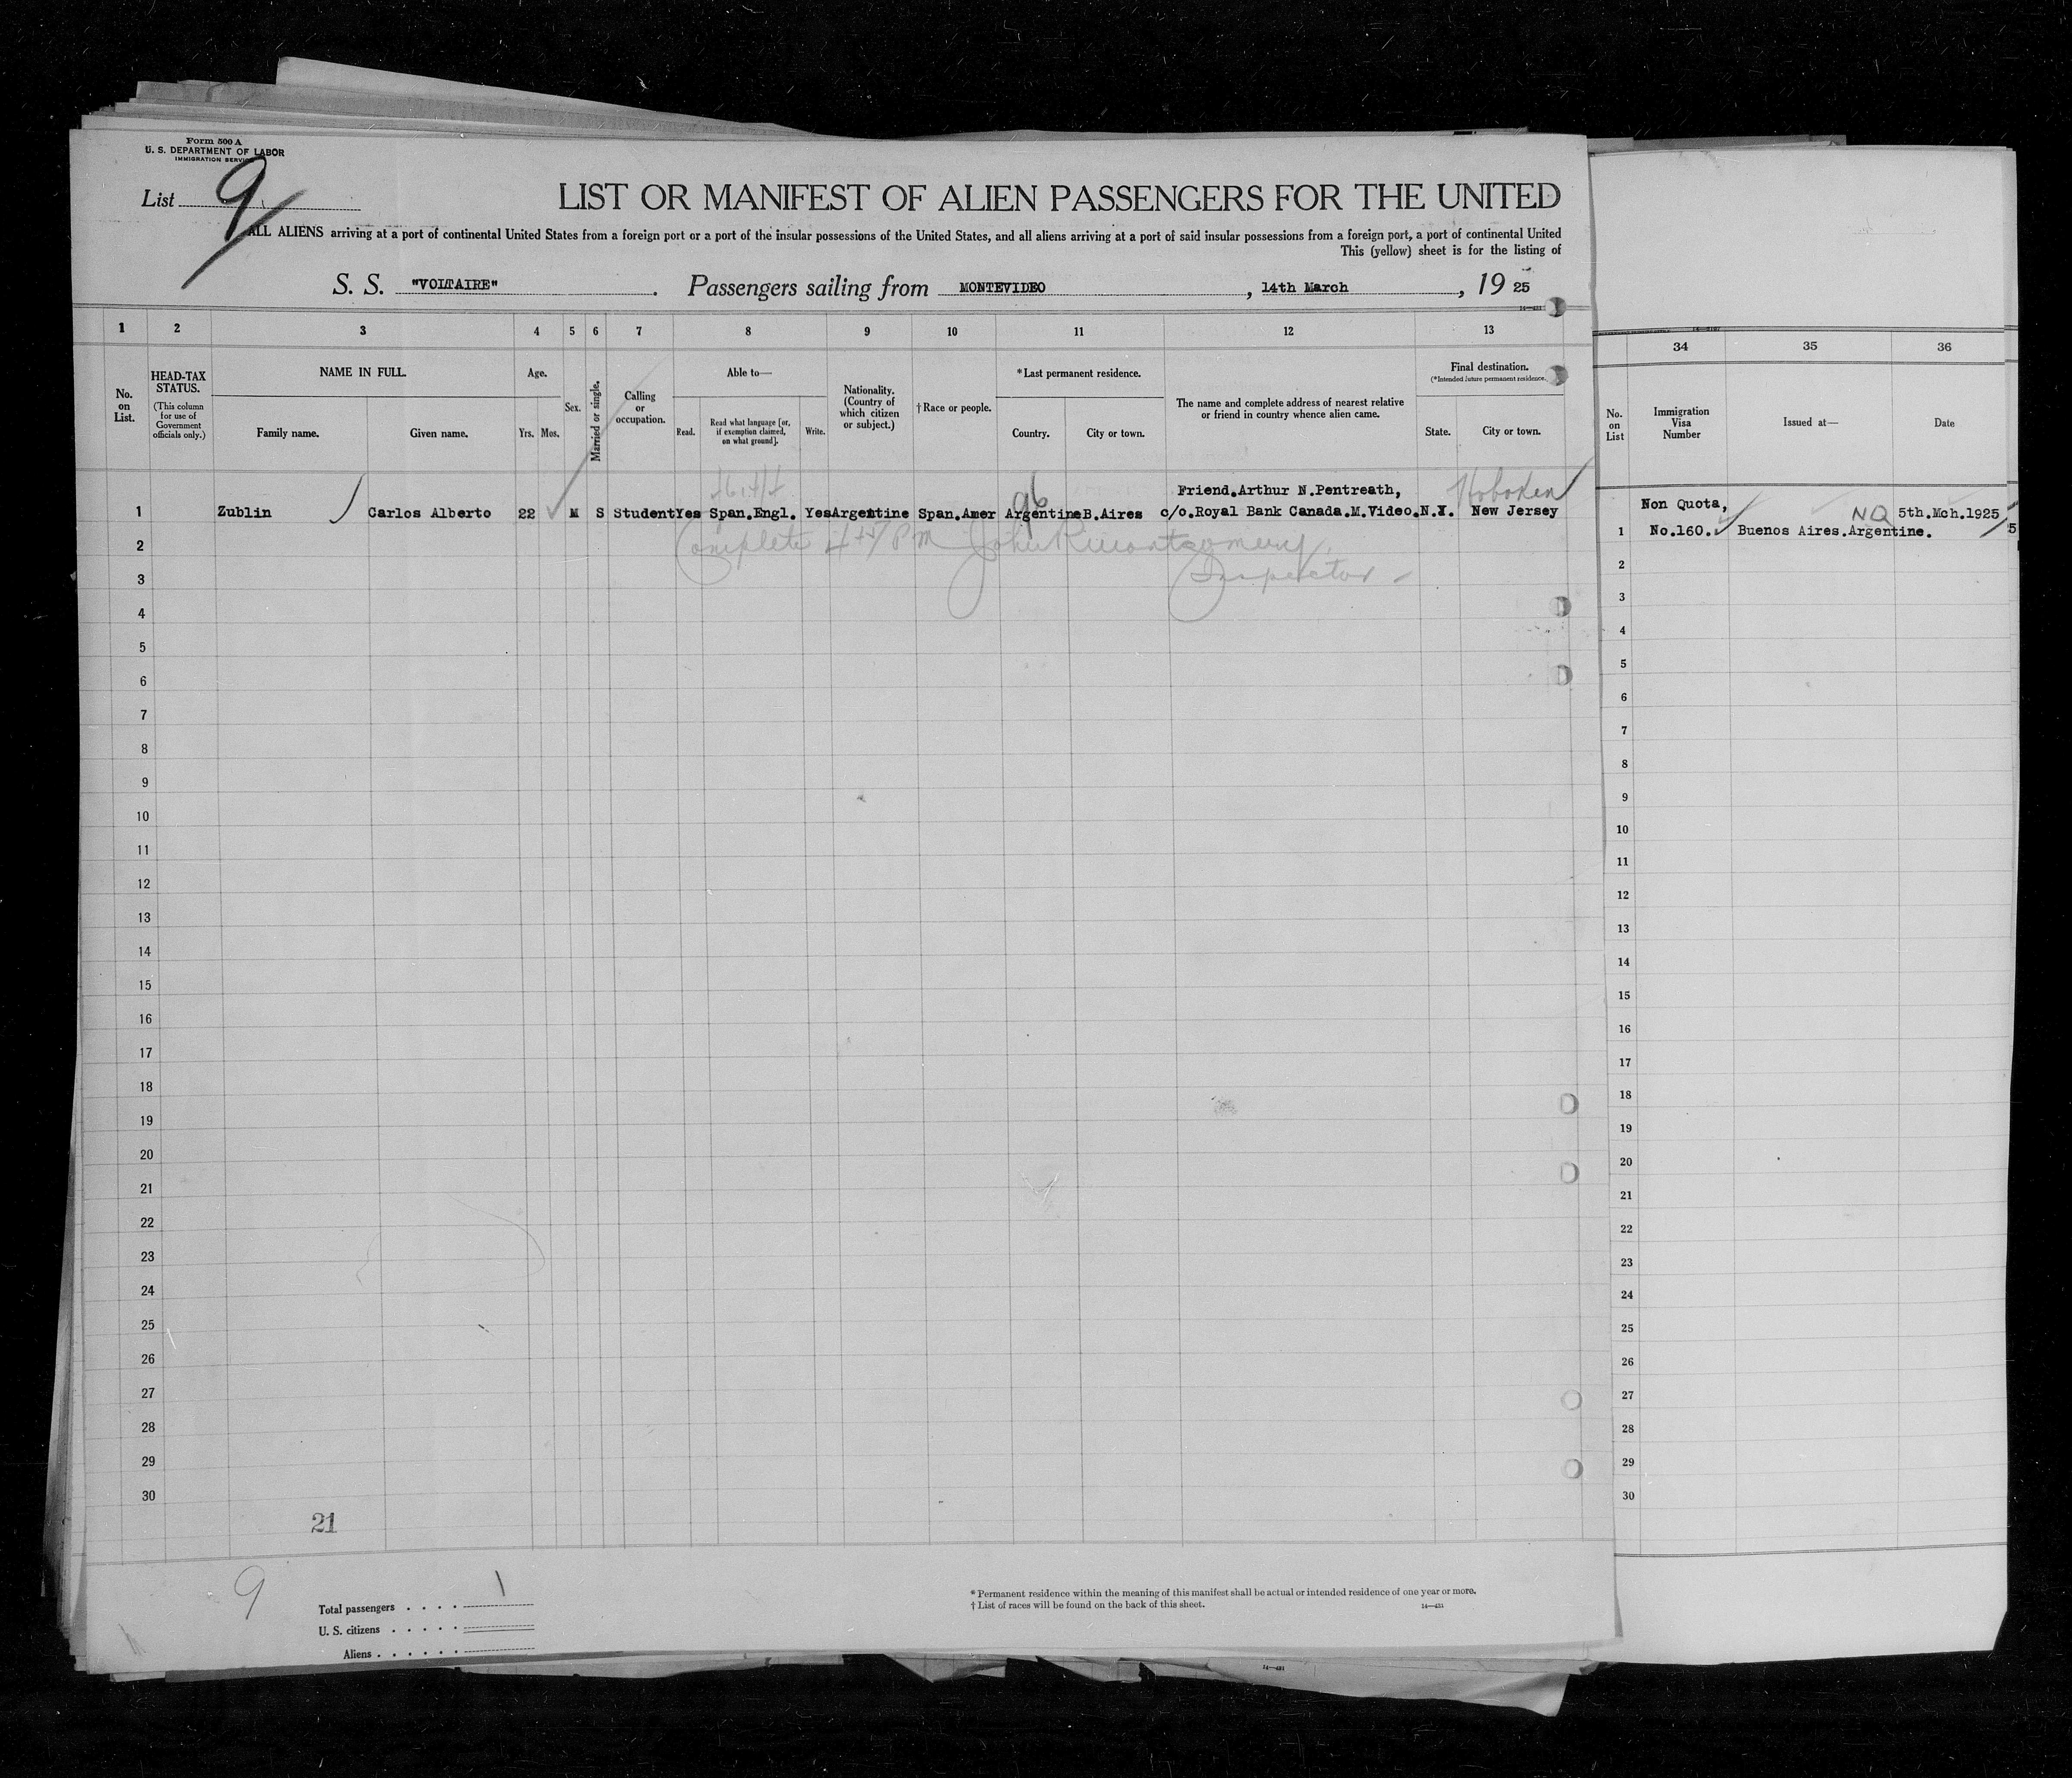 Form 500 A
U. S. DEPARTMENT OF LABOR
IMMIGRATION SERVICE
List 9
LIST OR MANIFEST OF ALIEN PASSENGERS FOR THE UNITED
ALL ALIENS arriving at a port of continental United States from a foreign port or a port of the insular possessions of the United States, and all aliens arriving at a port of said insular possessions from a foreign port, a port of continental United
This (yellow) sheet is for the listing of
S. S. "VOLTAIRE" Passengers sailing from MONTEVIDEO, 14th March, 19 25
1 2 3 4 5 6 7 8 9 10 11 12 13
No. on List.
HEAD-TAX STATUS.
(This column for use of Government officials only.)
NAME IN FULL.
Family name. Given name.
Age.
Yrs. Mos.
Sex.
Married or single.
Calling or occupation.
Able to—
Read. Read what language [or, if exemption claimed, on what ground]. Write.
Nationality. (Country of which citizen or subject.)
† Race or people.
*Last permanent residence.
Country. City or town.
The name and complete address of nearest relative or friend in country whence alien came.
Final destination.
(*Intended future permanent residence.)
State. City or town.
34 35 36
No. on List
Immigration Visa Number
Issued at—
Date
96
Friend.Arthur N.Pentreath, Hoboken
1 Zublin Carlos Alberto 22 M S Student Yes Span.Engl. Yes Argentine Span.Amer Argentine B.Aires c/o.Royal Bank Canada.M.Video. New Jersey
Complete John R Montgomery
Inspector
Non Quota, NQ 5th.Mch.1925
1 No.160. Buenos Aires.Argentine. 5
2
3
4
5
6
7
8
9
10
11
12
13
14
15
16
17
18
19
20
21
22
23
24
25
26
27
28
29
30
2
3
4
5
6
7
8
9
10
11
12
13
14
15
16
17
18
19
20
21
22
23
24
25
26
27
28
29
30
21
9
Total passengers . . . . 1
U. S. citizens . . . . .
Aliens . . . . . .
* Permanent residence within the meaning of this manifest shall be actual or intended residence of one year or more.
† List of races will be found on the back of this sheet.
14—431